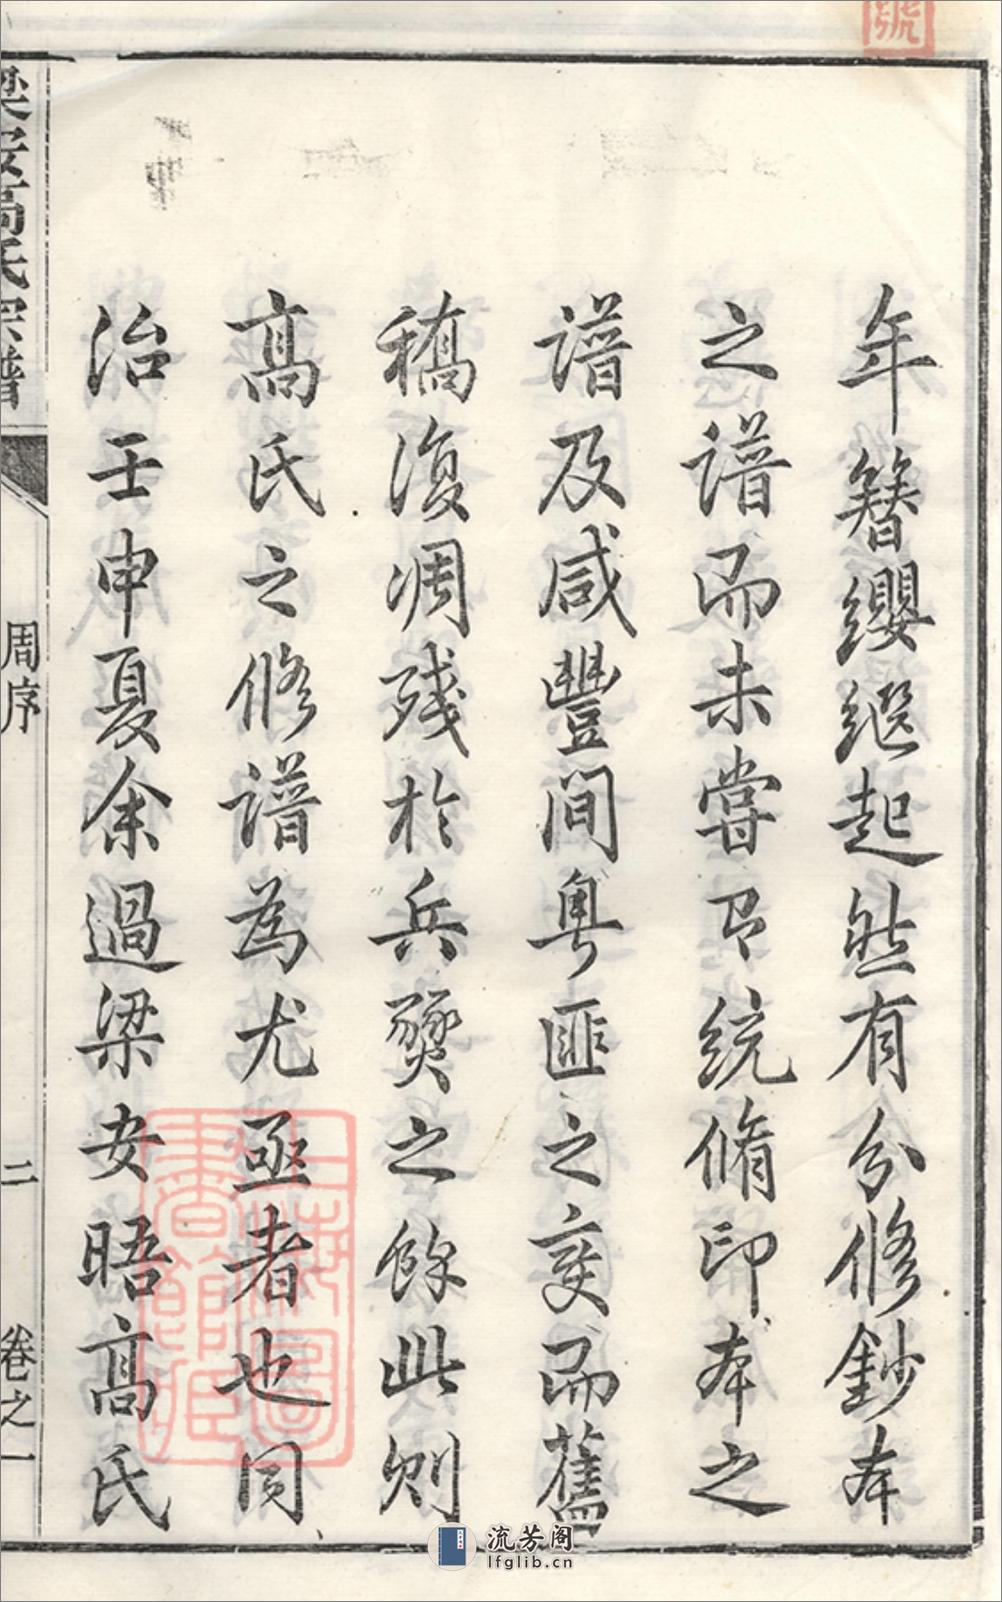 年簪纓繼起然有分修鈔本
之譜而未嘗有統脩印本之
譜及咸豐間粵匪之變而舊
稿復凋殘於兵燹之餘此則
高氏之修譜為尤亟者也同
治壬申夏余過梁安晤高氏
梁安高氏宗譜
周序
二
卷之一
上海圖書館藏
流芳阁
lfglib.cn
號